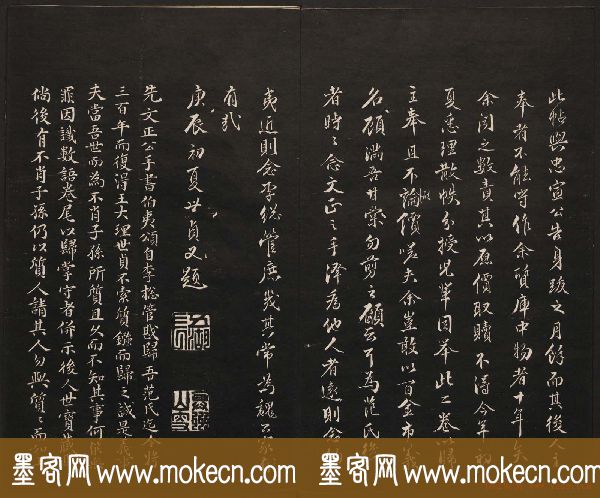 此帖與忠宣公告身跋之月餘而其後人主
奉者不能守作余質庫中物者十年矣
余閔之數責其以原價取贖不得今年
夏悉理散帙分授兒輩因舉此二卷以歸
主奉且不論價嗟夫余豈敢以百金市義
名顧滿吾甘棠勿剪之願云耳為范氏後
者時時念文正之手澤為他人者遠則念
夷近則念李總管庶幾其常為魏公家
有哉
庚辰初夏世貞又題
先文正公手書伯夷頌自李總管貺歸吾范氏迄今將
三百年而復得王大理世貞不索質鏹而歸之誠是義
夫當吾世而為不肖子孫所質且久而不知其事何
罪因識數語卷尾以歸掌守者俾示後人世寶藏
倘後有不肖子孫仍以質人請其人勿與質質而
墨客网 www.mokecn.com 墨客网 www.mokecn.com